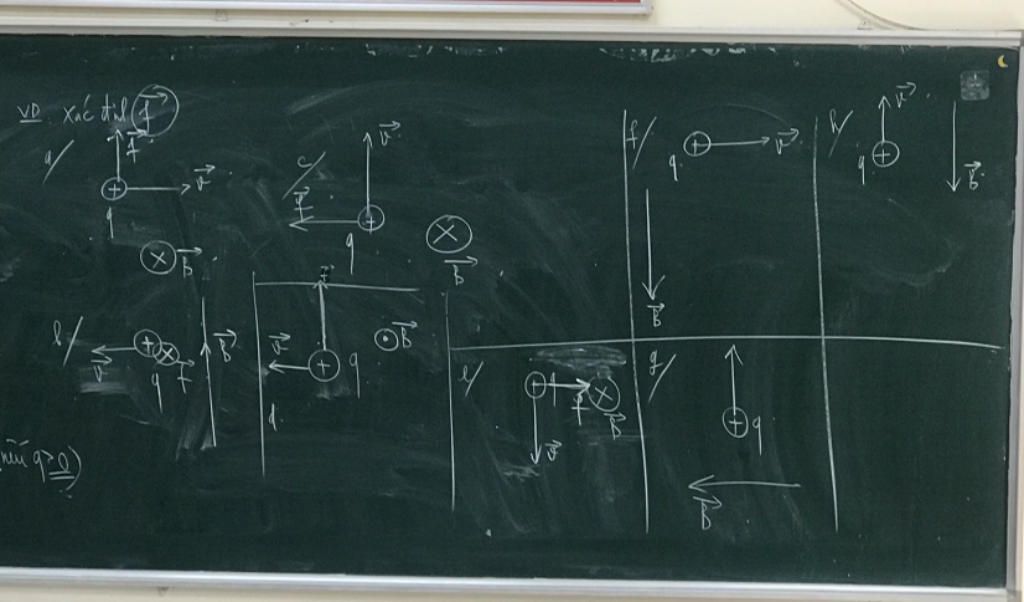 VD. Xác định f⃗
a/
f⃗
v⃗
+
q
× B⃗
b/
v⃗
+
×
q
f⃗
B⃗
nếu q>0)
c/
v⃗
f⃗
+
q
×
B⃗
d.
f⃗
v⃗
+ q
B⃗
e/
+
f⃗
×
B⃗
v⃗
f/
+
q
v⃗
B⃗
g/
+ q
B⃗
h/
v⃗
+
q
B⃗